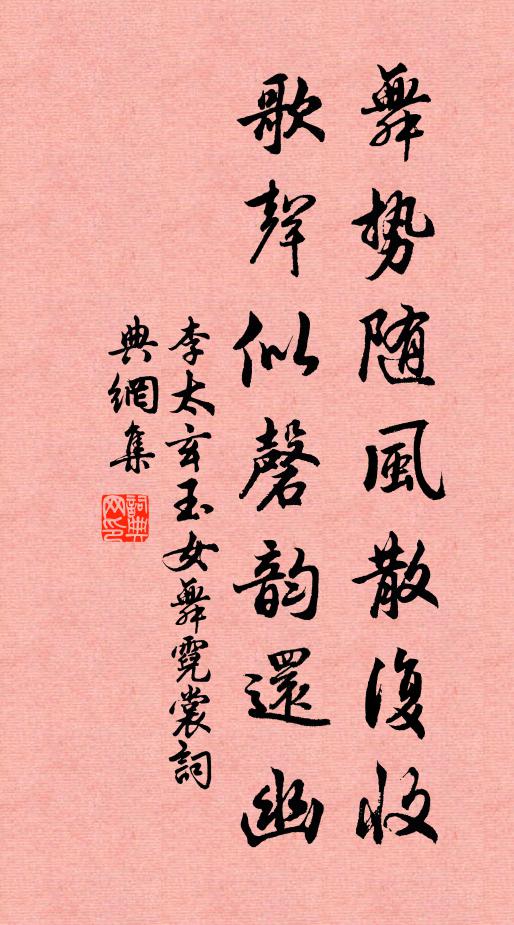 舞势随風散復收
歌聲似磬韵還幽
李太玄玉女舞霓裳詞
典網集
詞典
网印